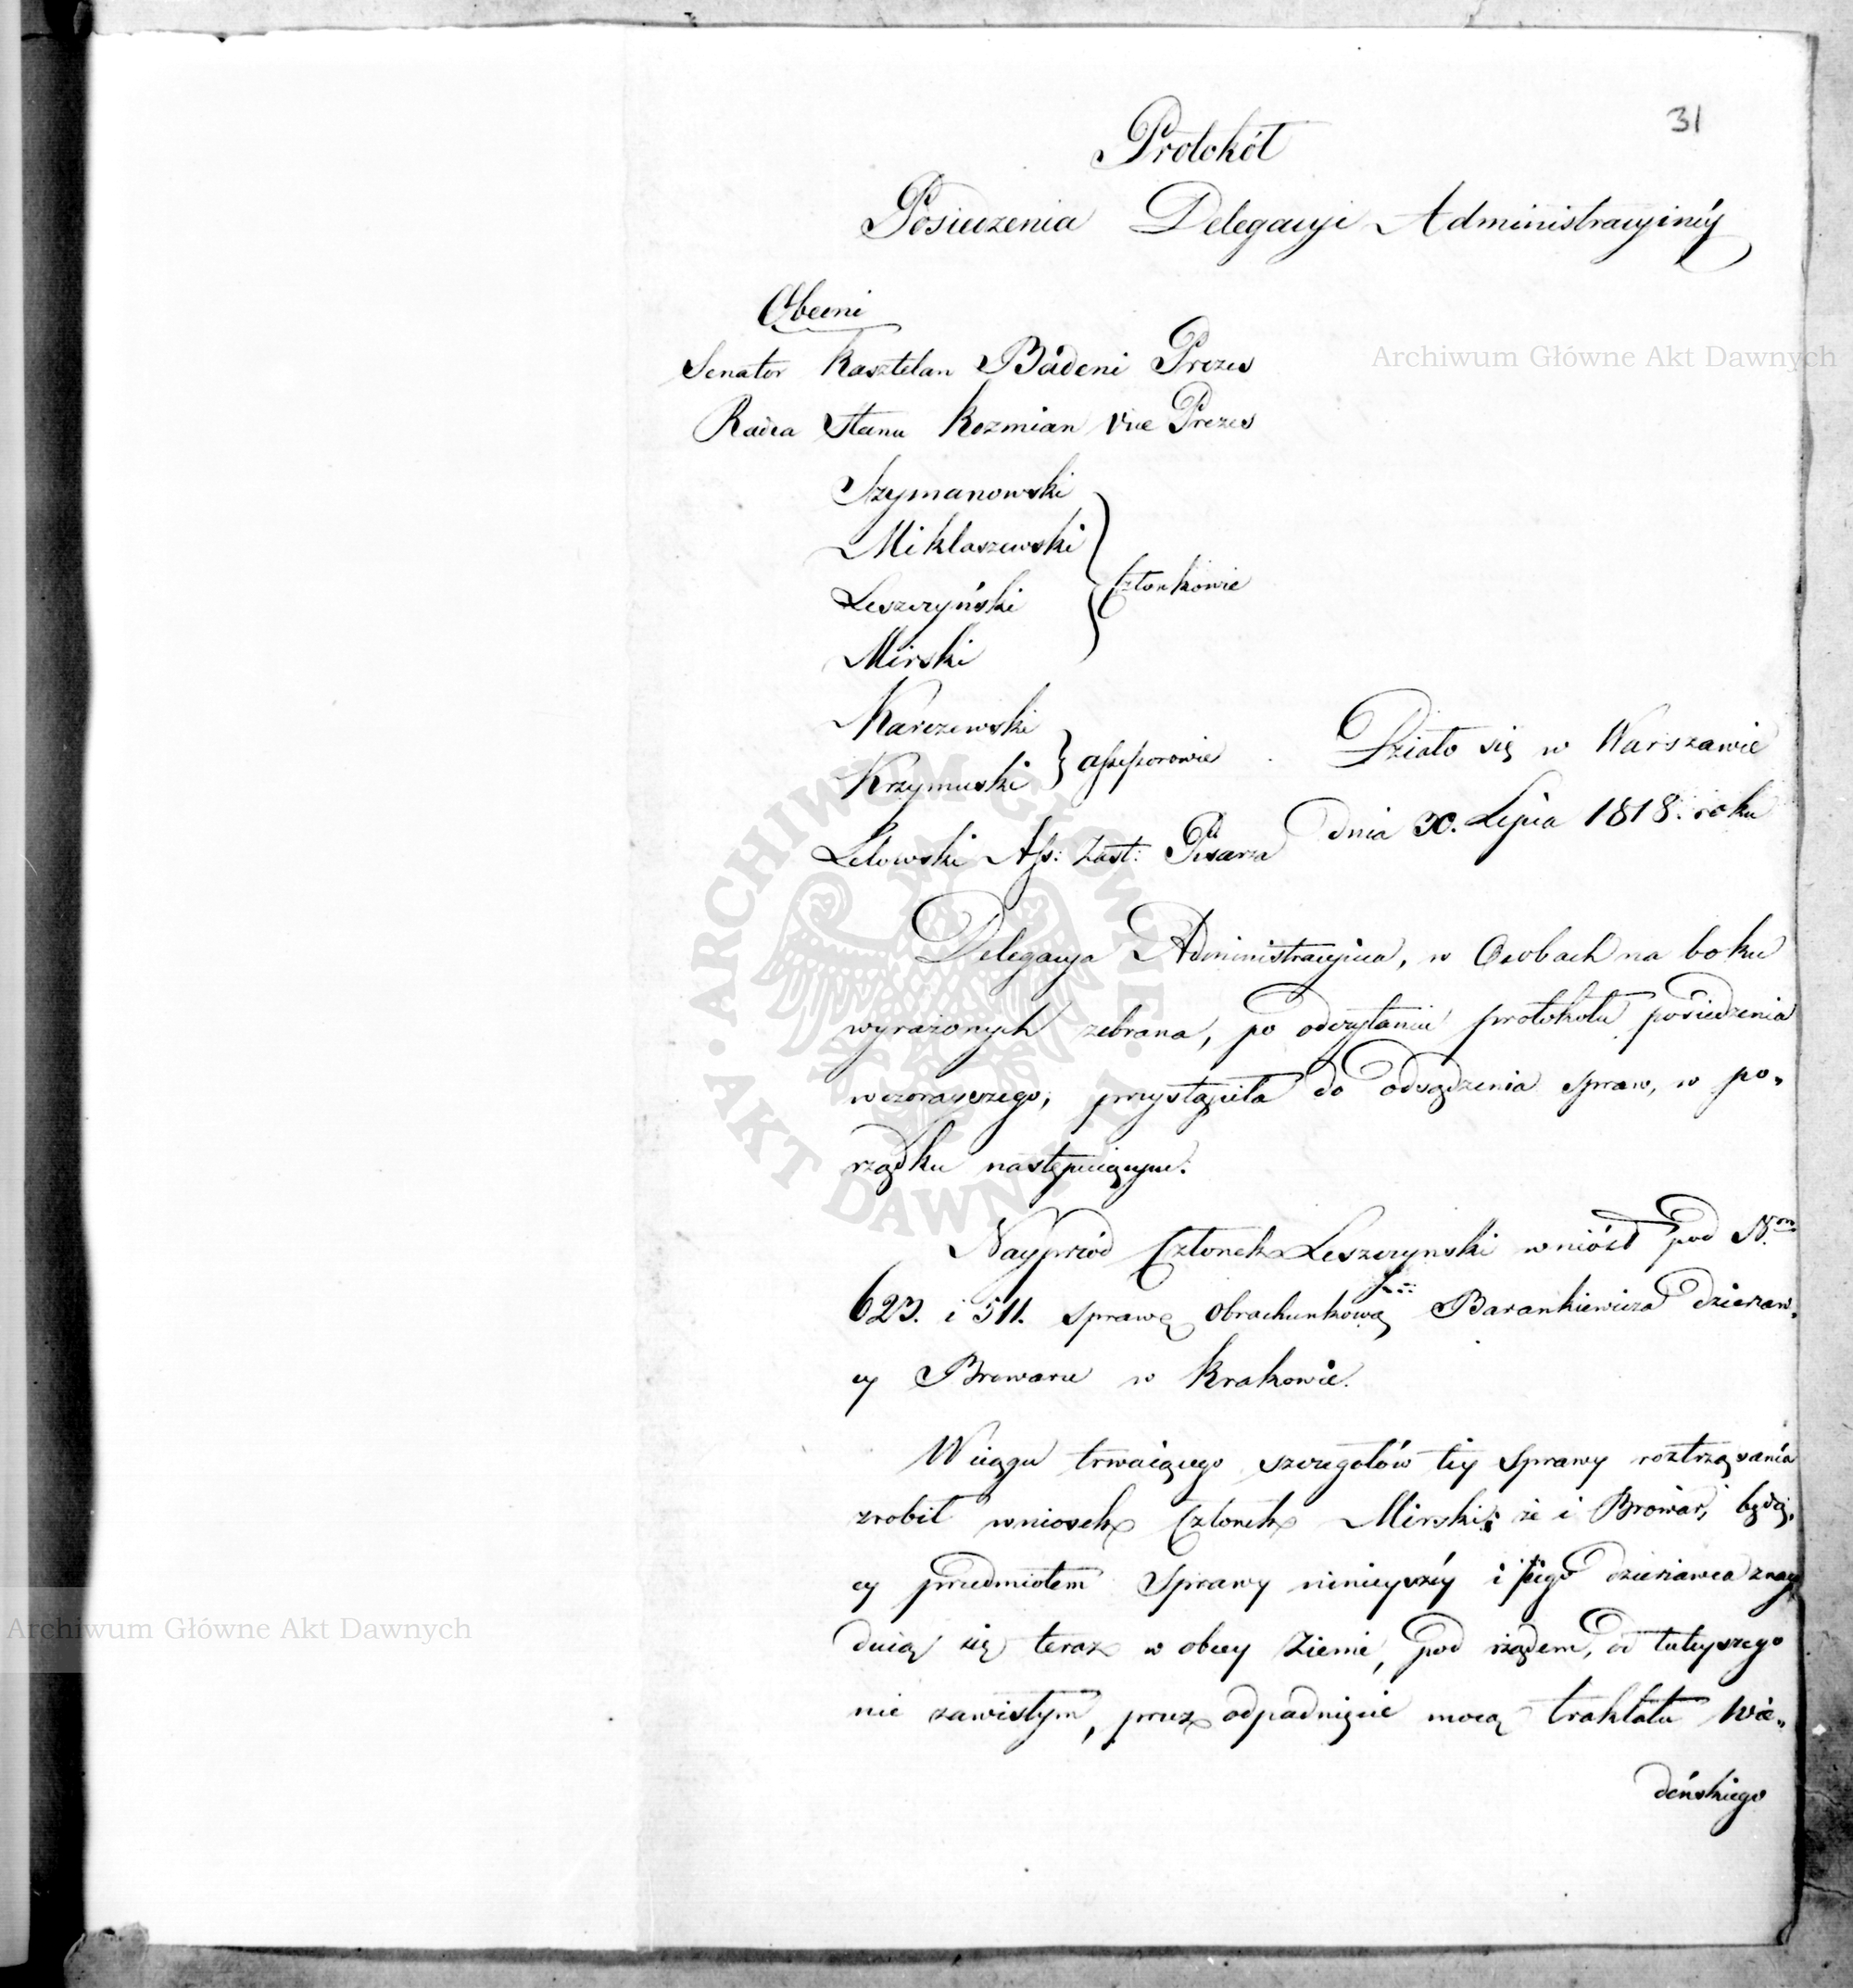 31
Protokół
Posiedzenia Delegacyi Administracyinéy
Obecni
Senator Kasztelan Badeni Prezes
Radca Stanu Kozmian Vice Prezes
Szymanowski
Miklaszewski
Leszczyński
Mirski
Członkowie
Karczewski
Krzymuski
assessorowie
Lelowski Ass: Zast: Pisarza
Działo się w Warszawie
dnia 30. Lipca 1818. roku
Delegacya Administracyina, w Osobach na boku
wyrażonych zebrana, po odczytaniu protokołu posiedzenia
wczorayszego, przystąpiła do odsądzenia spraw, w po„
rządku następuiącym.
Nayprzód Członek Leszczynski wniósł pod N.m
623. i 511. sprawę obrachunkową Barankiewicza dzierzaw„
cy Browaru w Krakowie.
W ciągu trwaiącego szczegołów téy Sprawy roztrząsania
zrobił wniosek Członek Mirski; że i Browar, będą„
cy przedmiotem Sprawy ninieyszéy i iego dzierżawca znay
duią się teraz w obcey Ziemi, pod rządem, od tuteyszego
nie zawisłym, przez odpadnięcie mocą traktatu Wie„
deńskiego
Archiwum Główne Akt Dawnych
Archiwum Główne Akt Dawnych
ARCHIWUM GŁÓWNE AKT DAWNYCH